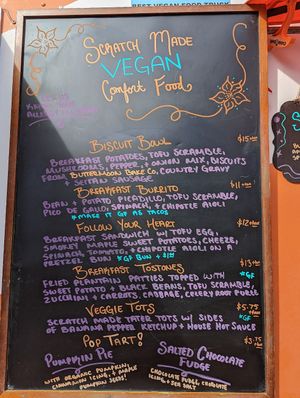 BEST VEGAN FOOD TRUCK
SCRATCH MADE
VEGAN
Comfort Food
BISCUIT BOWL $15
BREAKFAST POTATOES, TOFU SCRAMBLE,
MUSHROOMS, PEPPER, + ONION MIX, BISCUITS
FROM BUTTERMOON BAKE CO, COUNTRY GRAVY
+ SEITAN SAUSAGE
BREAKFAST BURRITO $11
BEAN + POTATO PICADILLO, TOFU SCRAMBLE,
PICO DE GALLO, SPINACH, + CHIPOTLE AIOLI
*MAKE IT GF AS TACOS
FOLLOW YOUR HEART $12
BREAKFAST SANDWICH W/ TOFU EGG,
SMOKEY MAPLE SWEET POTATOES, CHEEZE,
SPINACH, TOMATO, + CHIPOTLE AIOLI ON A
PRETZEL BUN *GF BUN + $1
BREAKFAST TOSTONES $13
FRIED PLANTAIN PATTIES TOPPED WITH *GF
SWEET POTATO + BLACK BEANS, TOFU SCRAMBLE,
ZUCCHINI + CARROTS, CABBAGE, CELERY ROOT PUREE
VEGGIE TOTS $5.75
SCRATCH MADE TATER TOTS W/ SIDES *GF
OF BANANA PEPPER KETCHUP + HOUSE HOT SAUCE
POP TART! $3.75
PUMPKIN PIE
WITH ORGANIC PUMPKIN,
CINNAMON ICING, + MAPLE
PUMPKIN SEEDS!
SALTED CHOCOLATE
FUDGE
CHOCOLATE FUDGE, CHOCOLATE
ICING, + SEA SALT